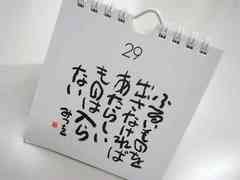 29
ふるいものを
出さなければ
あたらしい
ものは入ら
ない
みつを